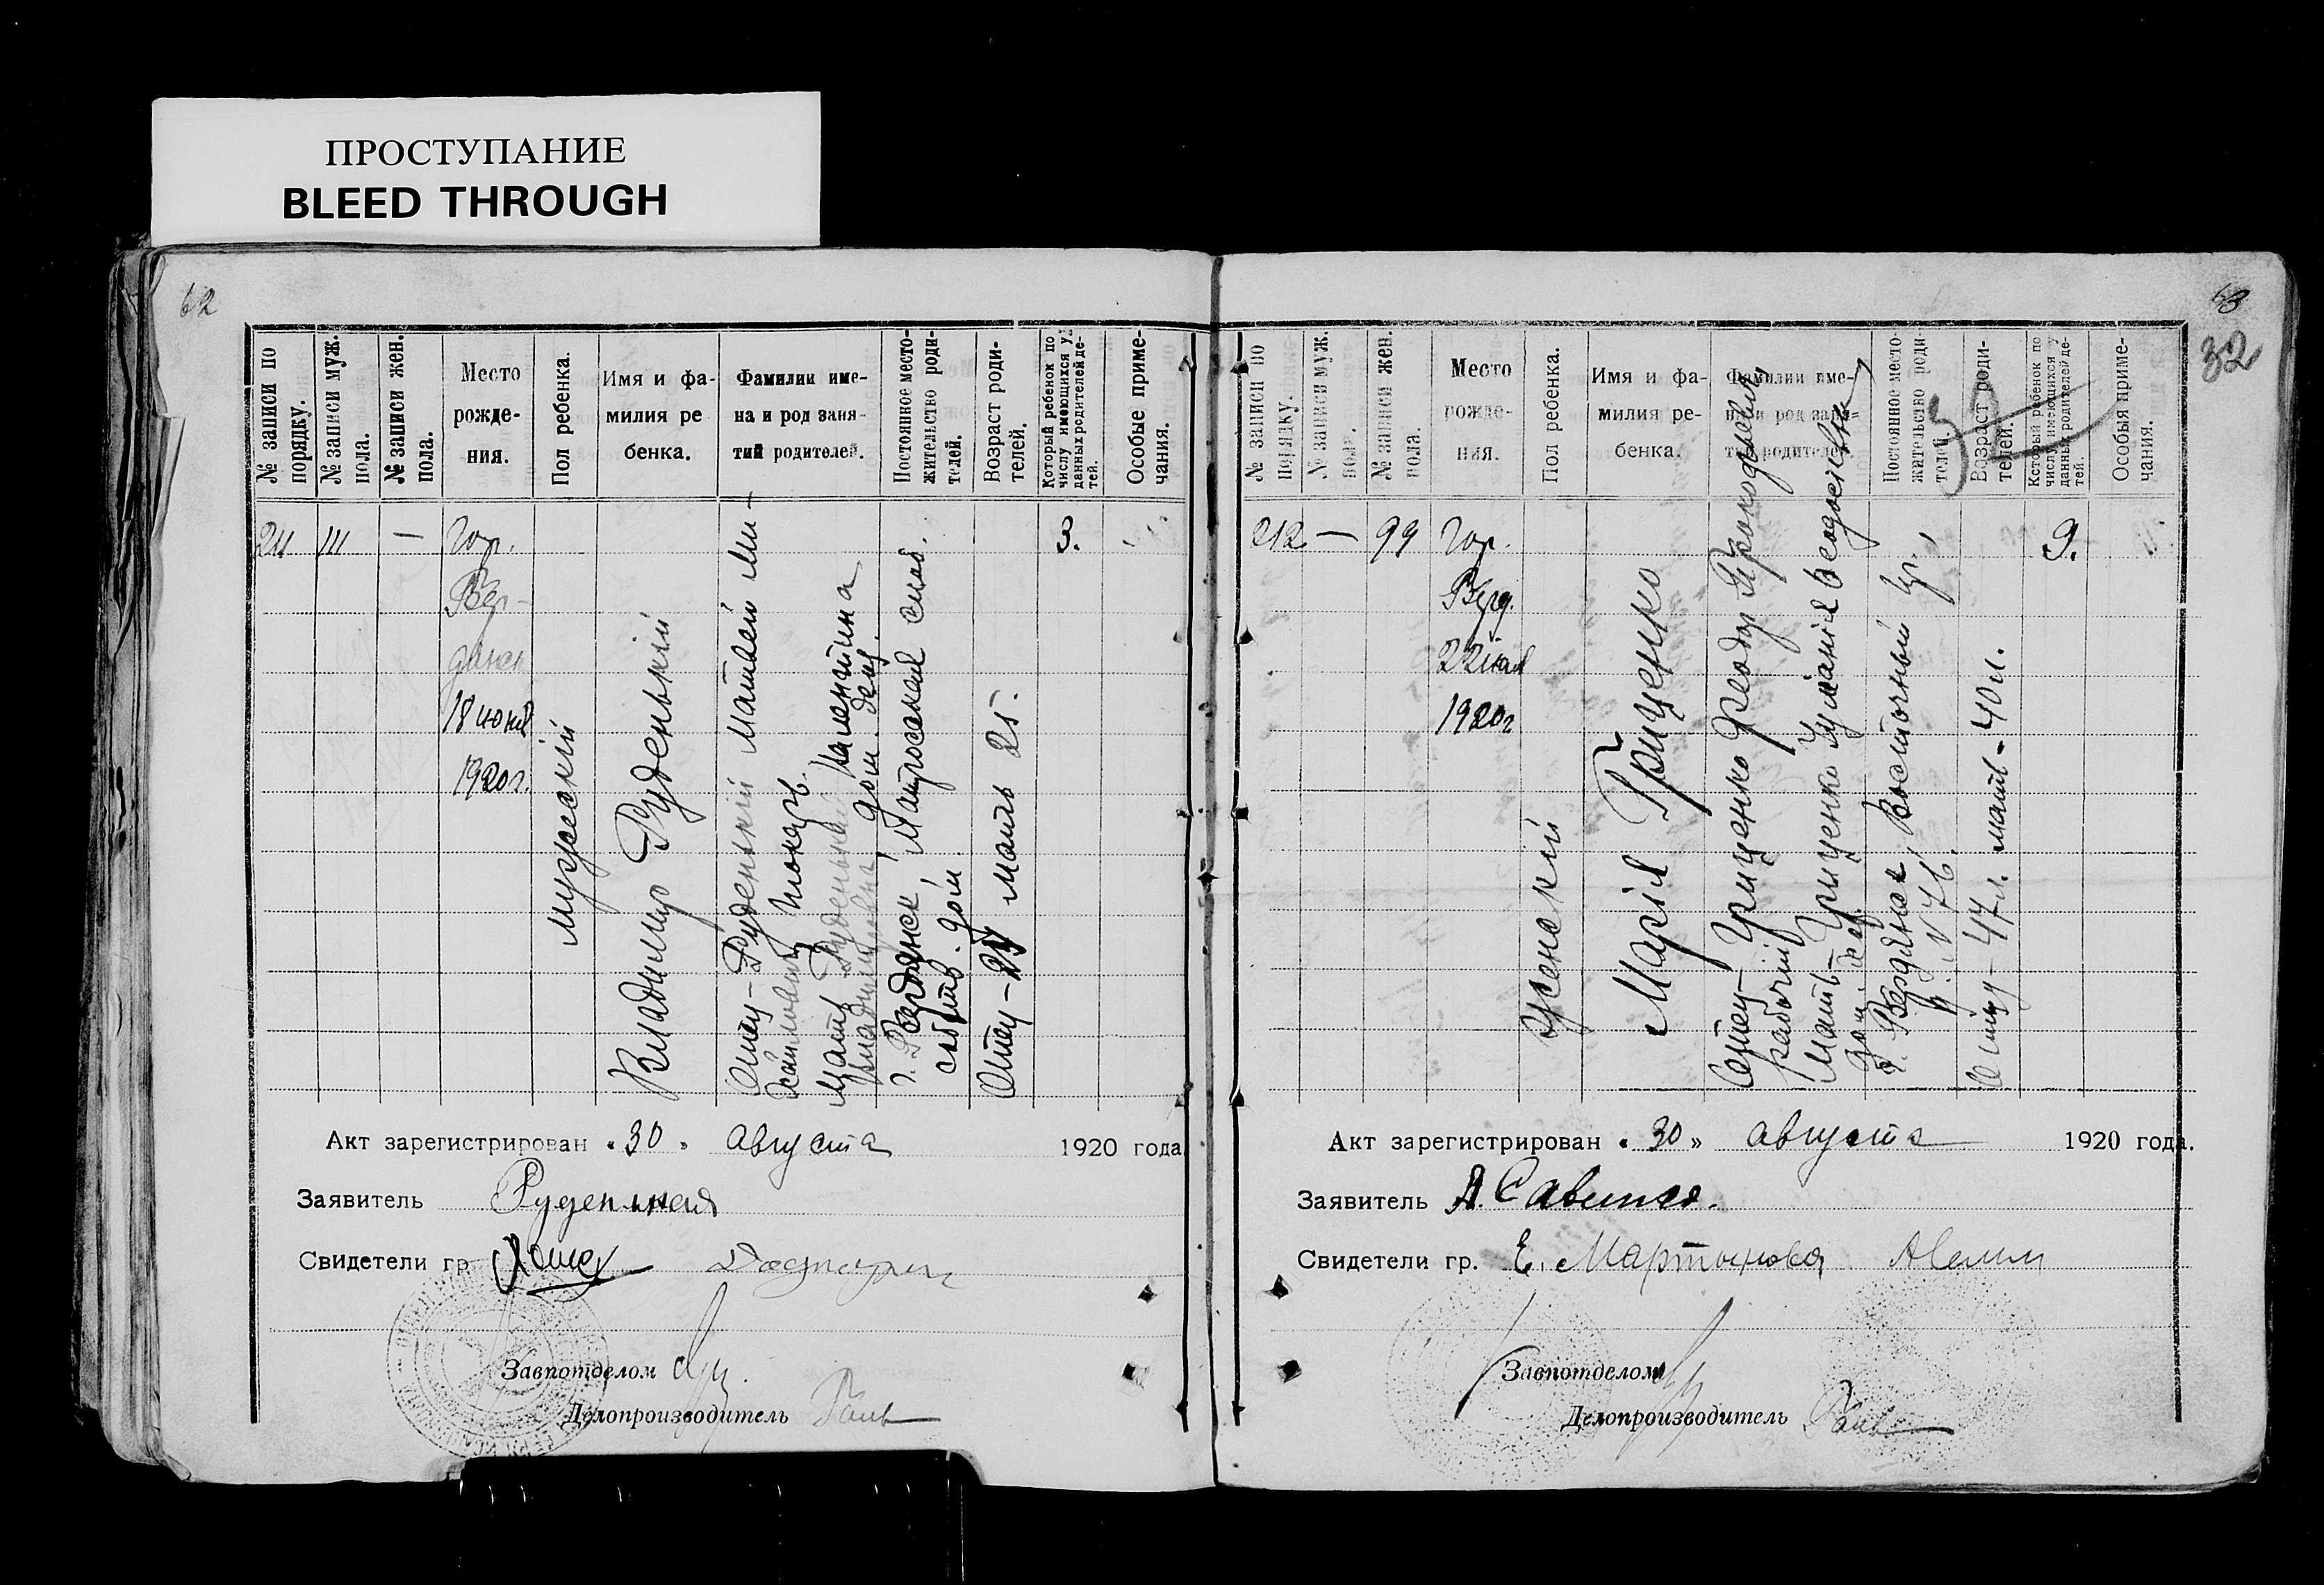 ПРОСТУПАНИЕ
BLEED THROUGH
62
№ записи по
порядку.
№ записи муж.
пола.
№ записи жен.
пола.
Место
рожде-
ния.
Пол ребенка.
Имя и фа-
милия ре
бенка.
Фамилии име-
на и род заня-
тий родителей.
Постоянное место-
жительство роди-
телей.
Возраст роди-
телей.
Который ребенок по
числу имеющихся у
данных родителей де-
тей.
Особые приме-
чания.
211
111
—
Гор.
Бер-
дянск
18 июня
1920 г.
мужескій
Владимир Руденькій
Отец - Руденькій Матвей Ми-
хайлович, токарь.
Мать Руденькая Валентина
Владимировна, дом. деят.
г. Бердянск, Матросская слоб.
собств. дом
Отец - 24 мать 25.
3.
Акт зарегистрирован « 30 » августа 1920 года
Заявитель Руденькая
Свидетели гр.
Завпотделом
Делопроизводитель
63
32
№ записи по
порядку.
№ записи муж.
пола.
№ записи жен.
пола.
Место
рожде-
ния.
Пол ребенка.
Имя и фа-
милия ре-
бенка.
Фамилии име-
на и род заня-
тий родителей
Постоянное место-
жительство роди-
телей.
Возраст роди-
телей.
Который ребенок по
числу имеющихся у
данных родителей де-
тей.
Особыя приме-
чания.
212
—
99
Гор.
Берд.
22 мая
1920 г
женский
Марія Гриценко
Отец - Гриценко Феодор
рабочій
Мать - Гриценко Феодосьевна
г. Бердянск, Восточный
№ 76.
Отцу - 47 л. мать - 40 л.
9.
Акт зарегистрирован « 30 » августа 1920 года.
Заявитель А. Савицкая.
Свидетели гр. Е. Мартынова
Завпотделом
Делопроизводитель